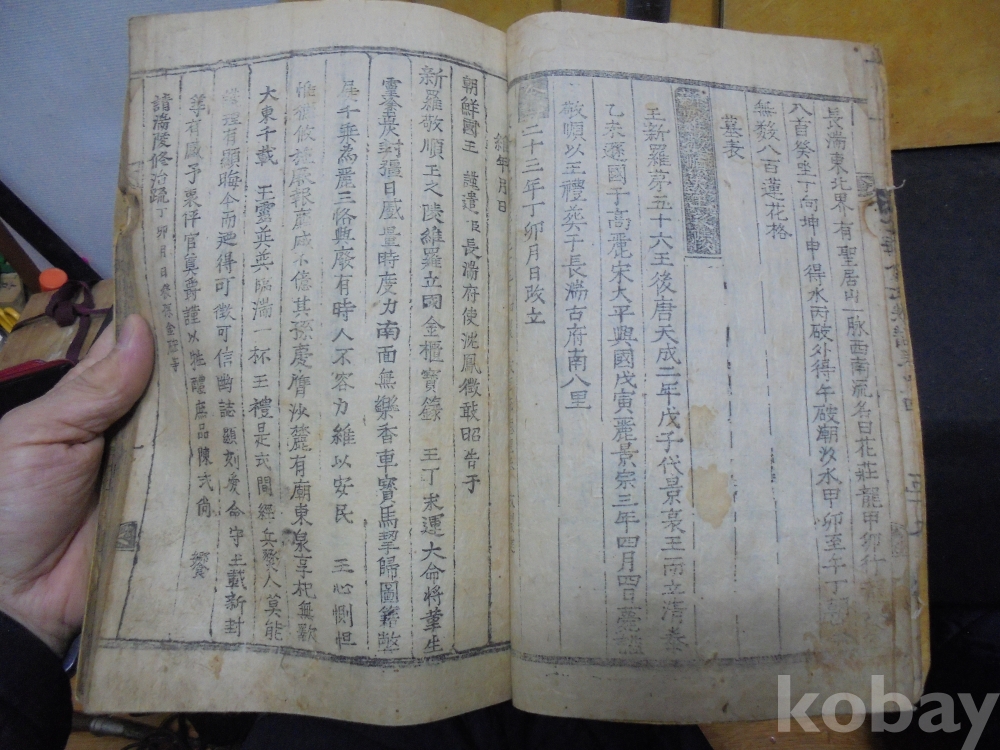 長湍東北界有聖居山一脉西南流名曰花莊龍甲卯行
八首癸坐丁向坤申得水丙破外得午破潮汝水甲卯至午丁
無数八百蓮花格
墓表
王新羅苐五十六王後唐天成二年戊子代景哀王而立清泰
乙未遜國于高麗宋太平興國戊寅麗景宗三年四月四日薨謚
敬順以王禮葬于長湍古府南八里
二十三年丁卯月日改立
維年月日
朝鮮國王 謹遣臣長湍府使沈鳳徵敢昭告于
新羅敬順王之陵維羅立國金櫃寶籙 王丁末運大命將
靈 封疆日蹙量時度力南面無樂香車寶馬挈歸圖籍
千乘為麗三恪興廢有時人不容力維以安民 王心惻怛
惟 根 咸不億其孫慶膺沙麓有廟東泉享祀無斁
大東千載 王靈英英臨湍一杯 王禮是式間經兵燹人莫能
理有顯晦今而廼得可徵可信幽誌顯刻爰命守土載新封
有感予衷伻官奠爵謹以牲醴庶品陳式尙 饗
請湍陵修治䟽丁卯月日
kobay